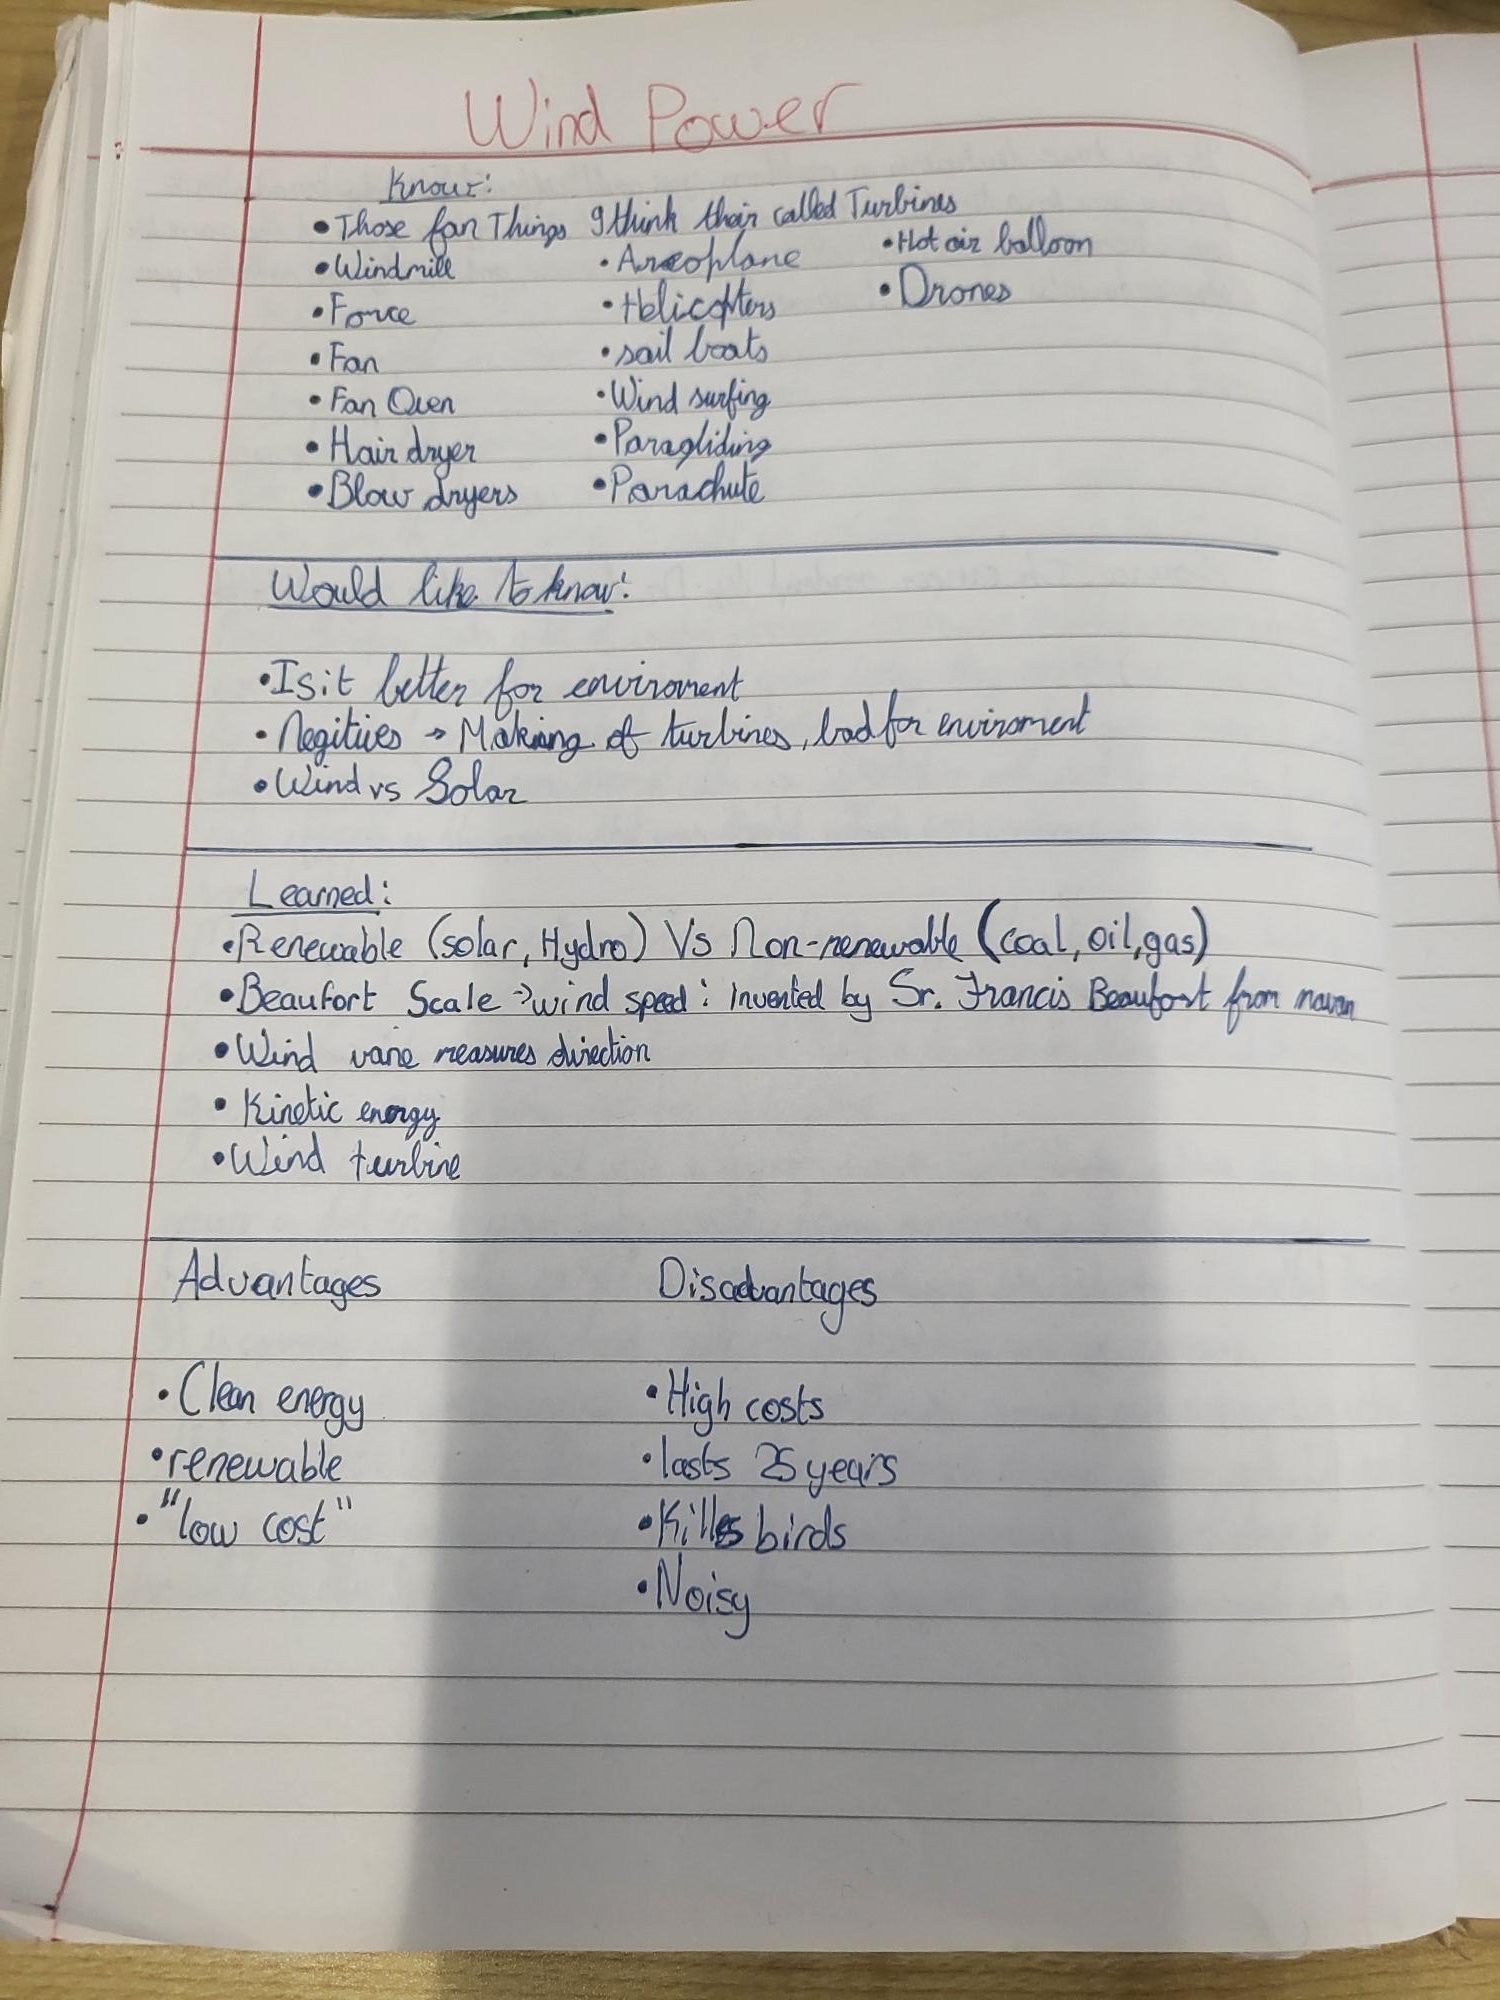 Wind Power
Know:
• Those fan Things I think their called Turbines
• Windmill • Areoplane • Hot air balloon
• Force • Helicopters • Drones
• Fan • sail boats
• Fan Oven • Wind surfing
• Hair dryer • Paragliding
• Blow dryers • Parachute
Would like to know:
• Is it better for enviroment
• Negitives → Making of turbines, bad for enviroment
• Wind vs Solar
Learned:
• Renewable (solar, Hydro) Vs Non-renewable (coal, oil, gas)
• Beaufort Scale → wind speed: invented by Sr. Francis Beaufort from navan
• Wind vane measures direction
• Kinetic energy
• Wind turbine
Advantages Disadvantages
• Clean energy • High costs
• renewable • lasts 25 years
• "low cost" • Kills birds
• Noisy